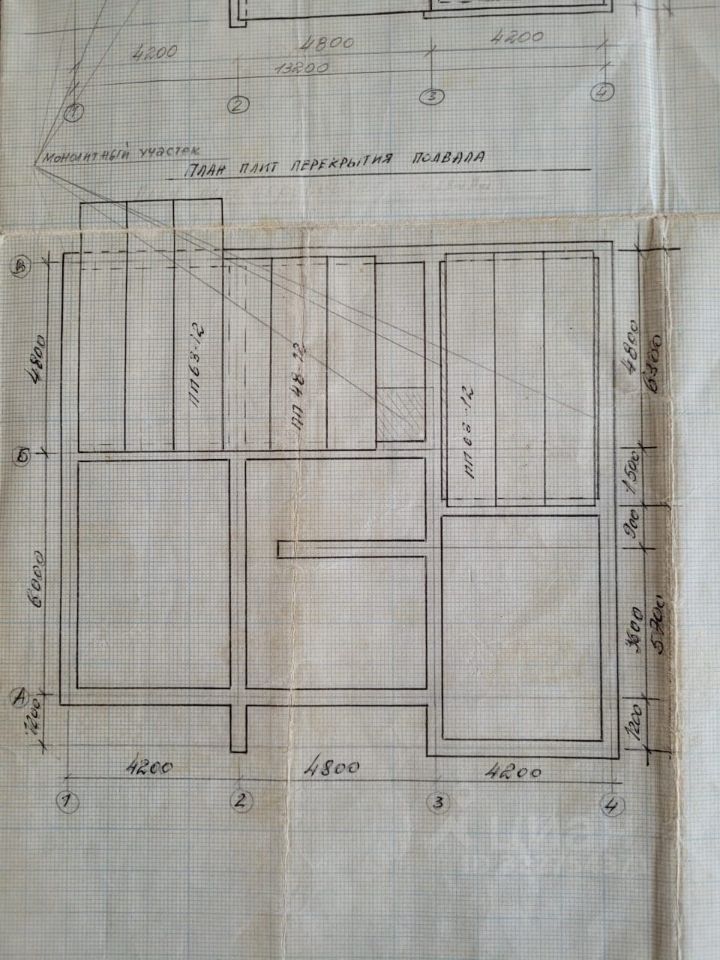 4200 4800 4200
13200
1 2 3 4
МОНОЛИТНЫЙ УЧАСТОК
ПЛАН ПЛИТ ПЕРЕКРЫТИЯ ПОДВАЛА
В
4800
ПП63-12
ПП 48-12
ПП 63-12
4800
6300
Б
1500
900
6000
3600
5700
А
1200
1200
4200 4800 4200
1 2 3 4